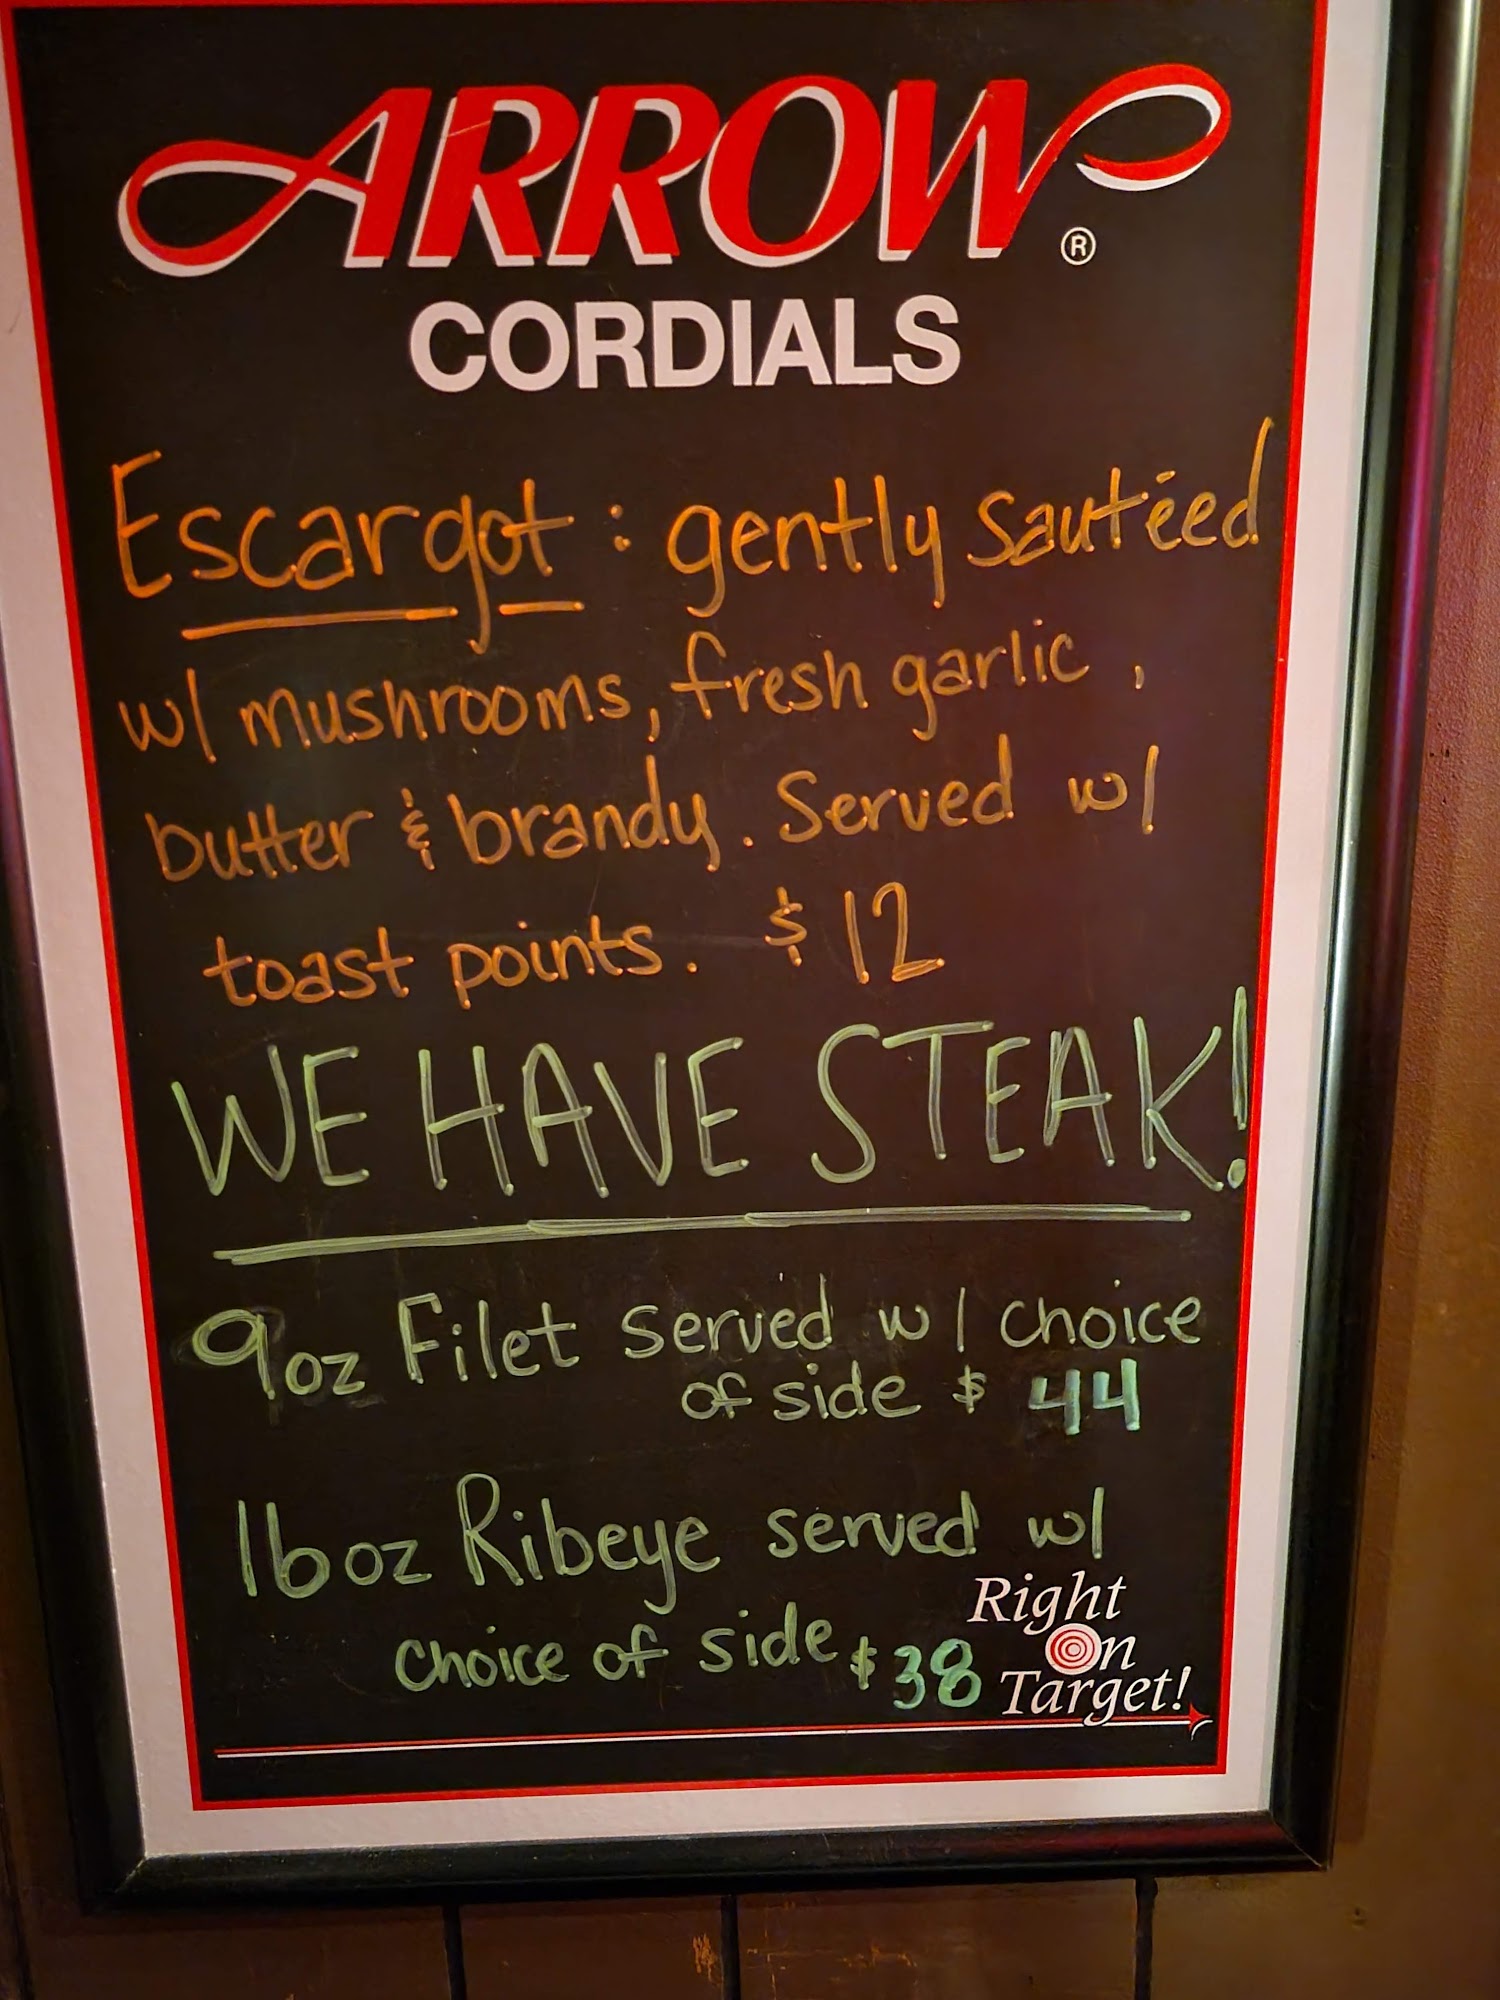 ARROW®
CORDIALS
Escargot : gently sautéed
w/ mushrooms, fresh garlic ,
butter & brandy. Served w/
toast points. $12
WE HAVE STEAK!
9oz Filet served w/ choice
of side $ 44
16oz Ribeye served w/
choice of side $38
Right
On
Target!